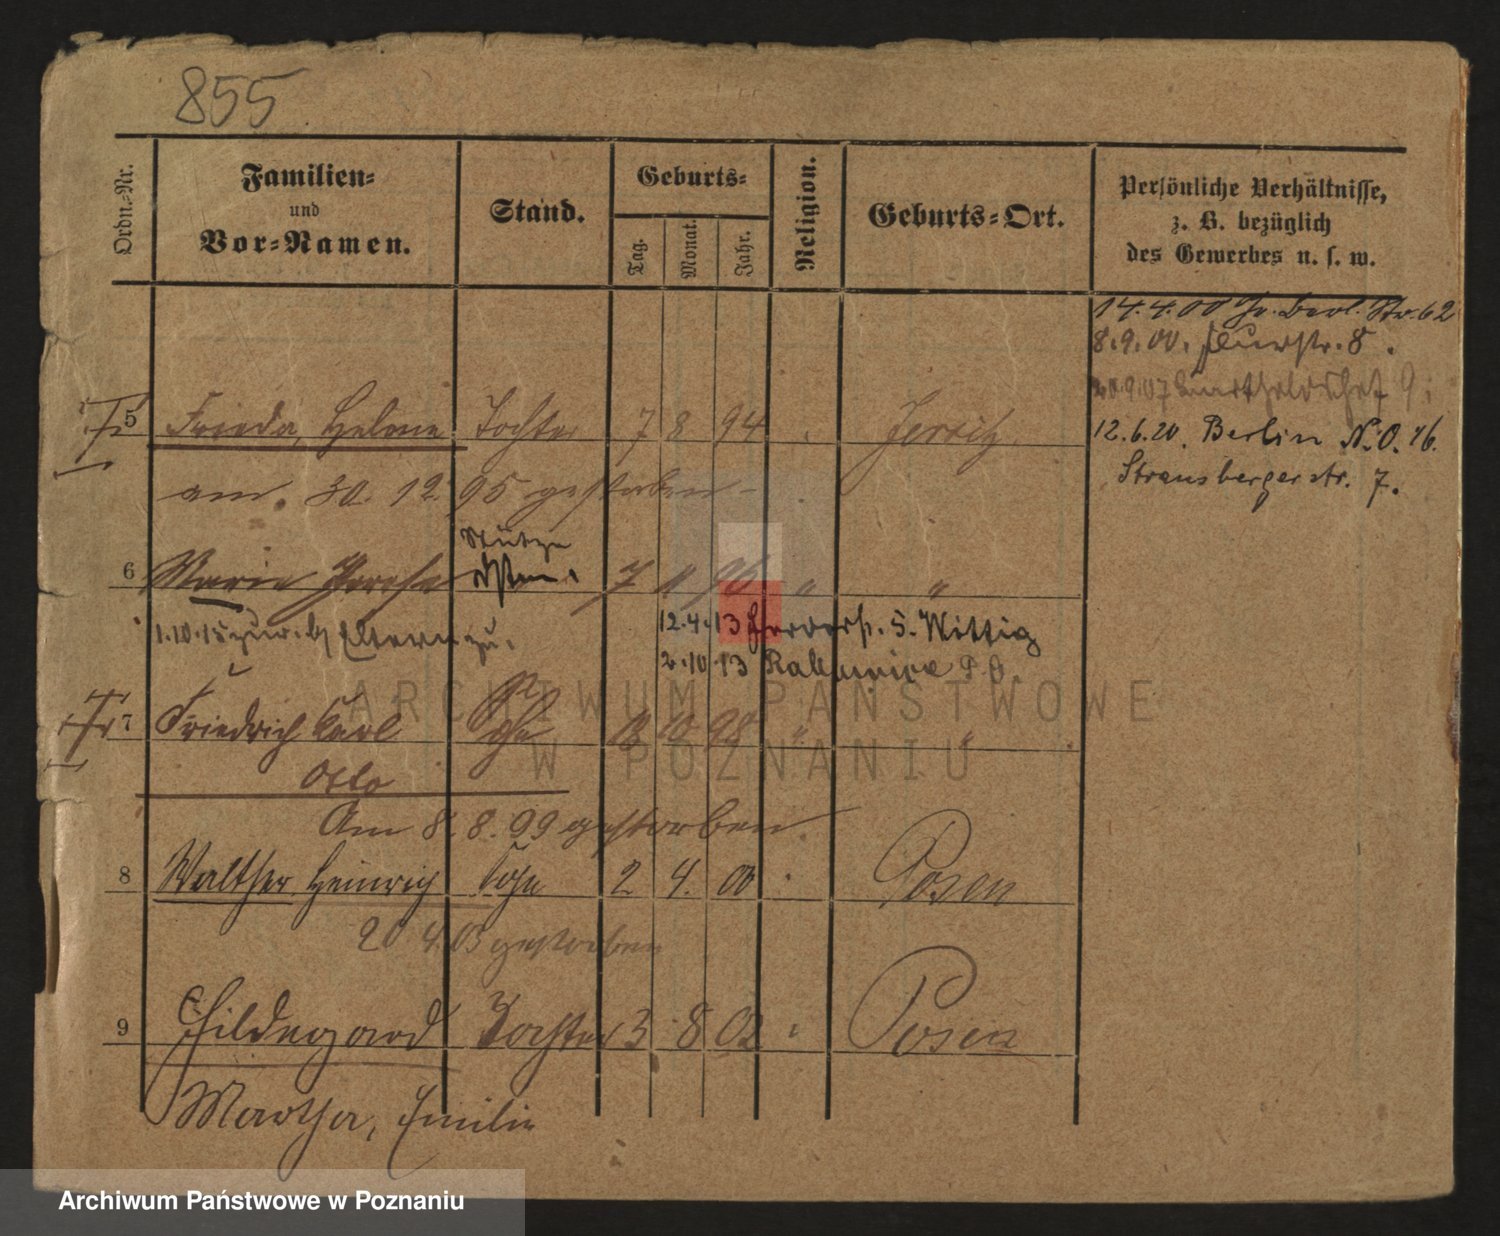 855
Ordn.-Nr.
Familien-
und
Vor-Namen.
Stand.
Geburts-
Tag.
Monat.
Jahr.
Religion.
Geburts-Ort.
Persönliche Verhältnisse,
z. B. bezüglich
des Gewerbes u. s. w.
14.4.00 Gr. Berl. Str. 62
8.9.00. str. 8.
20.9.07 9
5 Frieda, Helene Tochter 7 8 94 Jersitz
12.6.20. Berlin N.O. 46.
Strausbergerstr. 7.
am 30. 12. 95 gestorben
Stütze
6 Marie 7 11 96 " "
1.10.15 zur. b/ Eltern zu.
12.4.13 5. Wittig
2.10.13
7 Friedrich Carl 10 98 " "
Otto
Am 8. 8. 99 gestorben.
8 Walther Heinrich Sohn 2 4. 00 Posen
20 4.03 gestorben
9 Hildegard Tochter 3 8 02 Posen
Martha, Emilie
ARCHIWUM PAŃSTWOWE
W POZNANIU
Archiwum Państwowe w Poznaniu